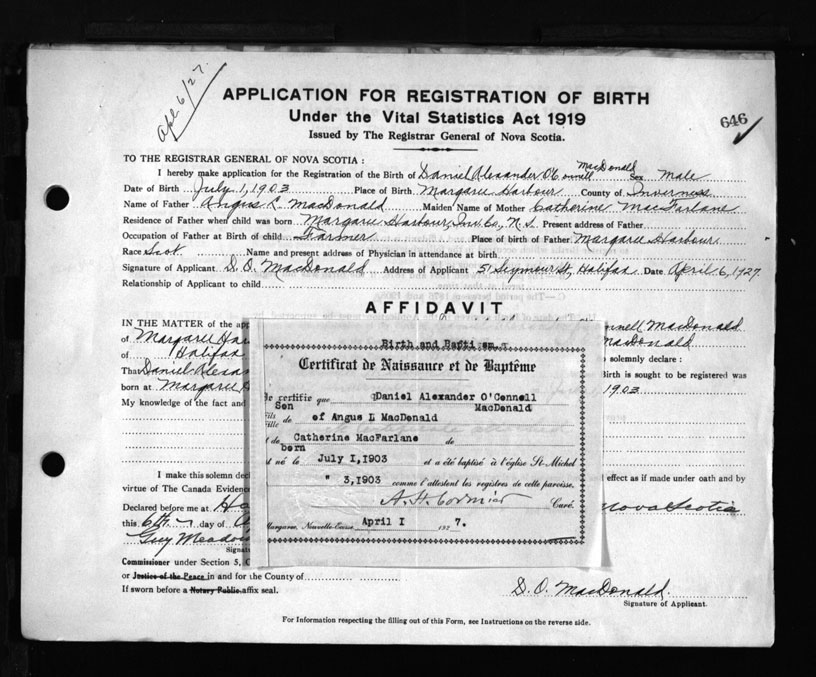 Apl. 6/27.
APPLICATION FOR REGISTRATION OF BIRTH
646
Under the Vital Statistics Act 1919
Issued by The Registrar General of Nova Scotia.
TO THE REGISTRAR GENERAL OF NOVA SCOTIA :
I hereby make application for the Registration of the Birth of Daniel Alexander O'Connell MacDonald Sex Male
Date of Birth July 1, 1903 Place of Birth Margaree Harbour County of Inverness
Name of Father Angus L MacDonald Maiden Name of Mother Catherine MacFarlane
Residence of Father when child was born Margaree Harbour, Inv. Co., N.S. Present address of Father
Occupation of Father at Birth of child Farmer Place of birth of Father Margaree Harbour
Race Scot. Name and present address of Physician in attendance at birth
Signature of Applicant D. O. MacDonald Address of Applicant 51 Seymour St, Halifax Date April 6, 1927.
Relationship of Applicant to child
AFFIDAVIT
IN THE MATTER of the app nnell MacDonald
of Margaree Har MacDonald
of Halifax solemnly declare :
That Daniel Alexan Birth is sought to be registered was
born at Margaree H 1903
My knowledge of the fact and
Birth and Baptism.
Certificat de Naissance et de Baptême
Je certifie que Daniel Alexander O'Connell
Son MacDenald
Fils de of Angus L MacDenald
Fille
et de Catherine MacFarlane de
born
est né le July I,1903 et a été baptisé à l'église St-Michel
" 3,1903 comme l'attestent les registres de cette paroisse.
A. H. Cormier Curé.
Margaree, Nouvelle-Ecosse April I 1927.
I make this solemn decl effect as if made under oath and by
virtue of The Canada Evidenc
Declared before me at Ha Nova Scotia
this 6th day of A
Guy Meadow
Signatu
Commissioner under Section 5, C
or Justice of the Peace in and for the County of
If sworn before a Notary Public affix seal.
D. O. MacDonald.
Signature of Applicant.
For Information respecting the filling out of this Form, see Instructions on the reverse side.